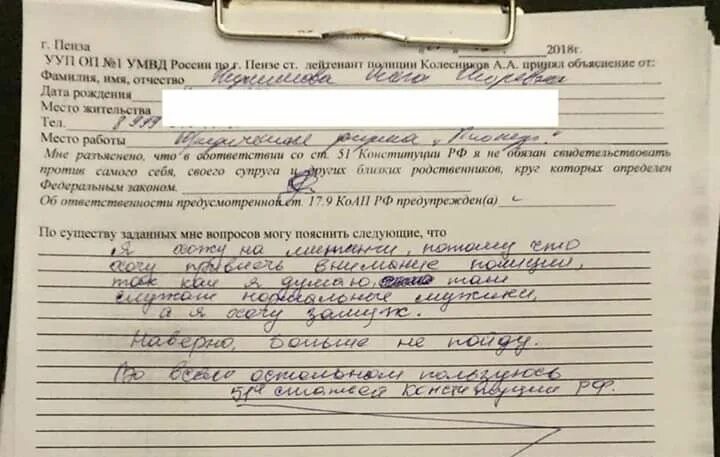 г. Пенза 2018г.
УУП ОП №1 УМВД России по г. Пензе ст. лейтенант полиции Колесников А.А. принял объяснение от:
Фамилия, имя, отчество
Дата рождения
Место жительства
Тел. 8 999
Место работы Юридическая фирма „Пионер".
Мне разъяснено, что в соответствии со ст. 51 Конституции РФ я не обязан свидетельствовать
против самого себя, своего супруга и других близких родственников, круг которых определен
Федеральным законом.
Об ответственности предусмотренной ст. 17.9 КоАП РФ предупрежден(а)
По существу заданных мне вопросов могу пояснить следующие, что
Я хожу на митинги, потому что
хочу привлечь внимание полиции,
так как я думаю, там
служат нормальные мужики,
а я хочу замуж.
Наверно, больше не пойду.
Во всем остальном пользуюсь
51ой статьей Конституции РФ.